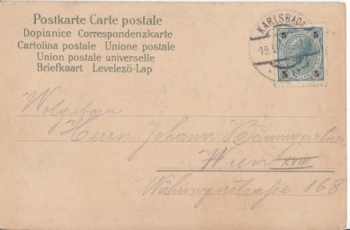 Postkarte Carte postale
Dopisnice Correspondenzkarte
Cartolina postale Unione postale
Union postale universelle
Briefkaart Levelező-Lap
KARLSBAD
5 5
5 5
Herrn Johann Baumgartner
Wien XVIII
Währingerstrasse 168